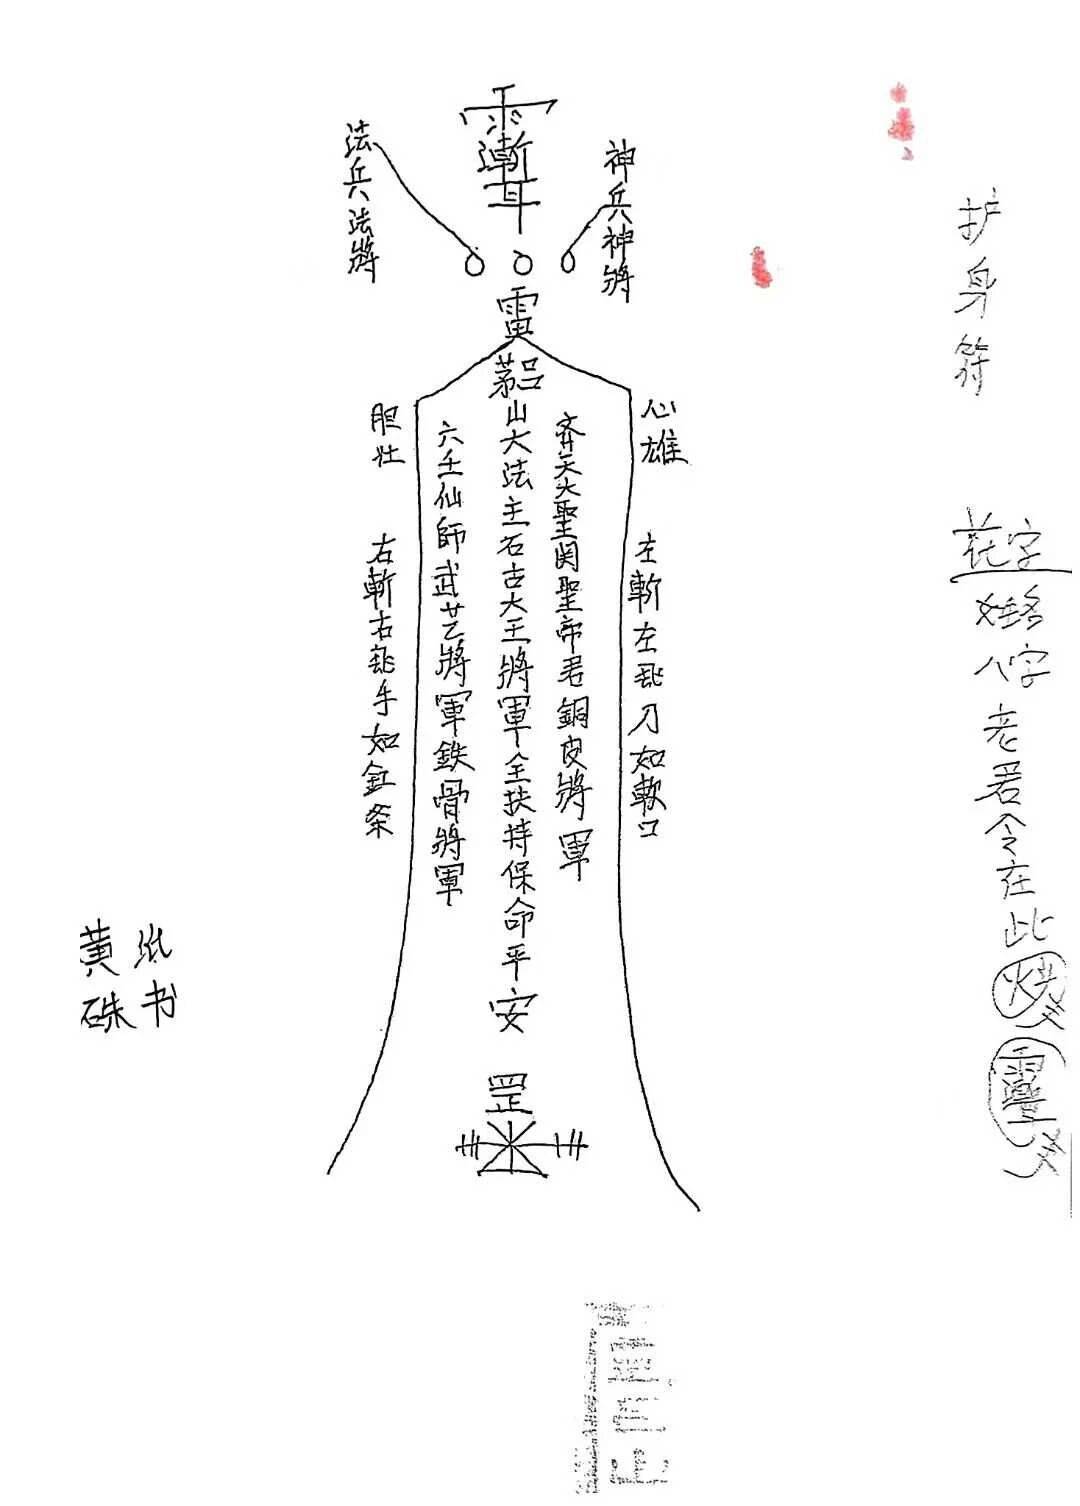 护身符
花字
姓名
八字
老君令在此
神兵神將
法兵法將
雷
心雄
左斬左飛刀如軟口
齐天大聖関聖帝君銅皮將軍
茅
山大法主石古大王將軍全扶持保命平安
罡
六壬仙師武艺將軍鉄骨將軍
胆壮
右斬右飛手如缸条
黄纸
硃书